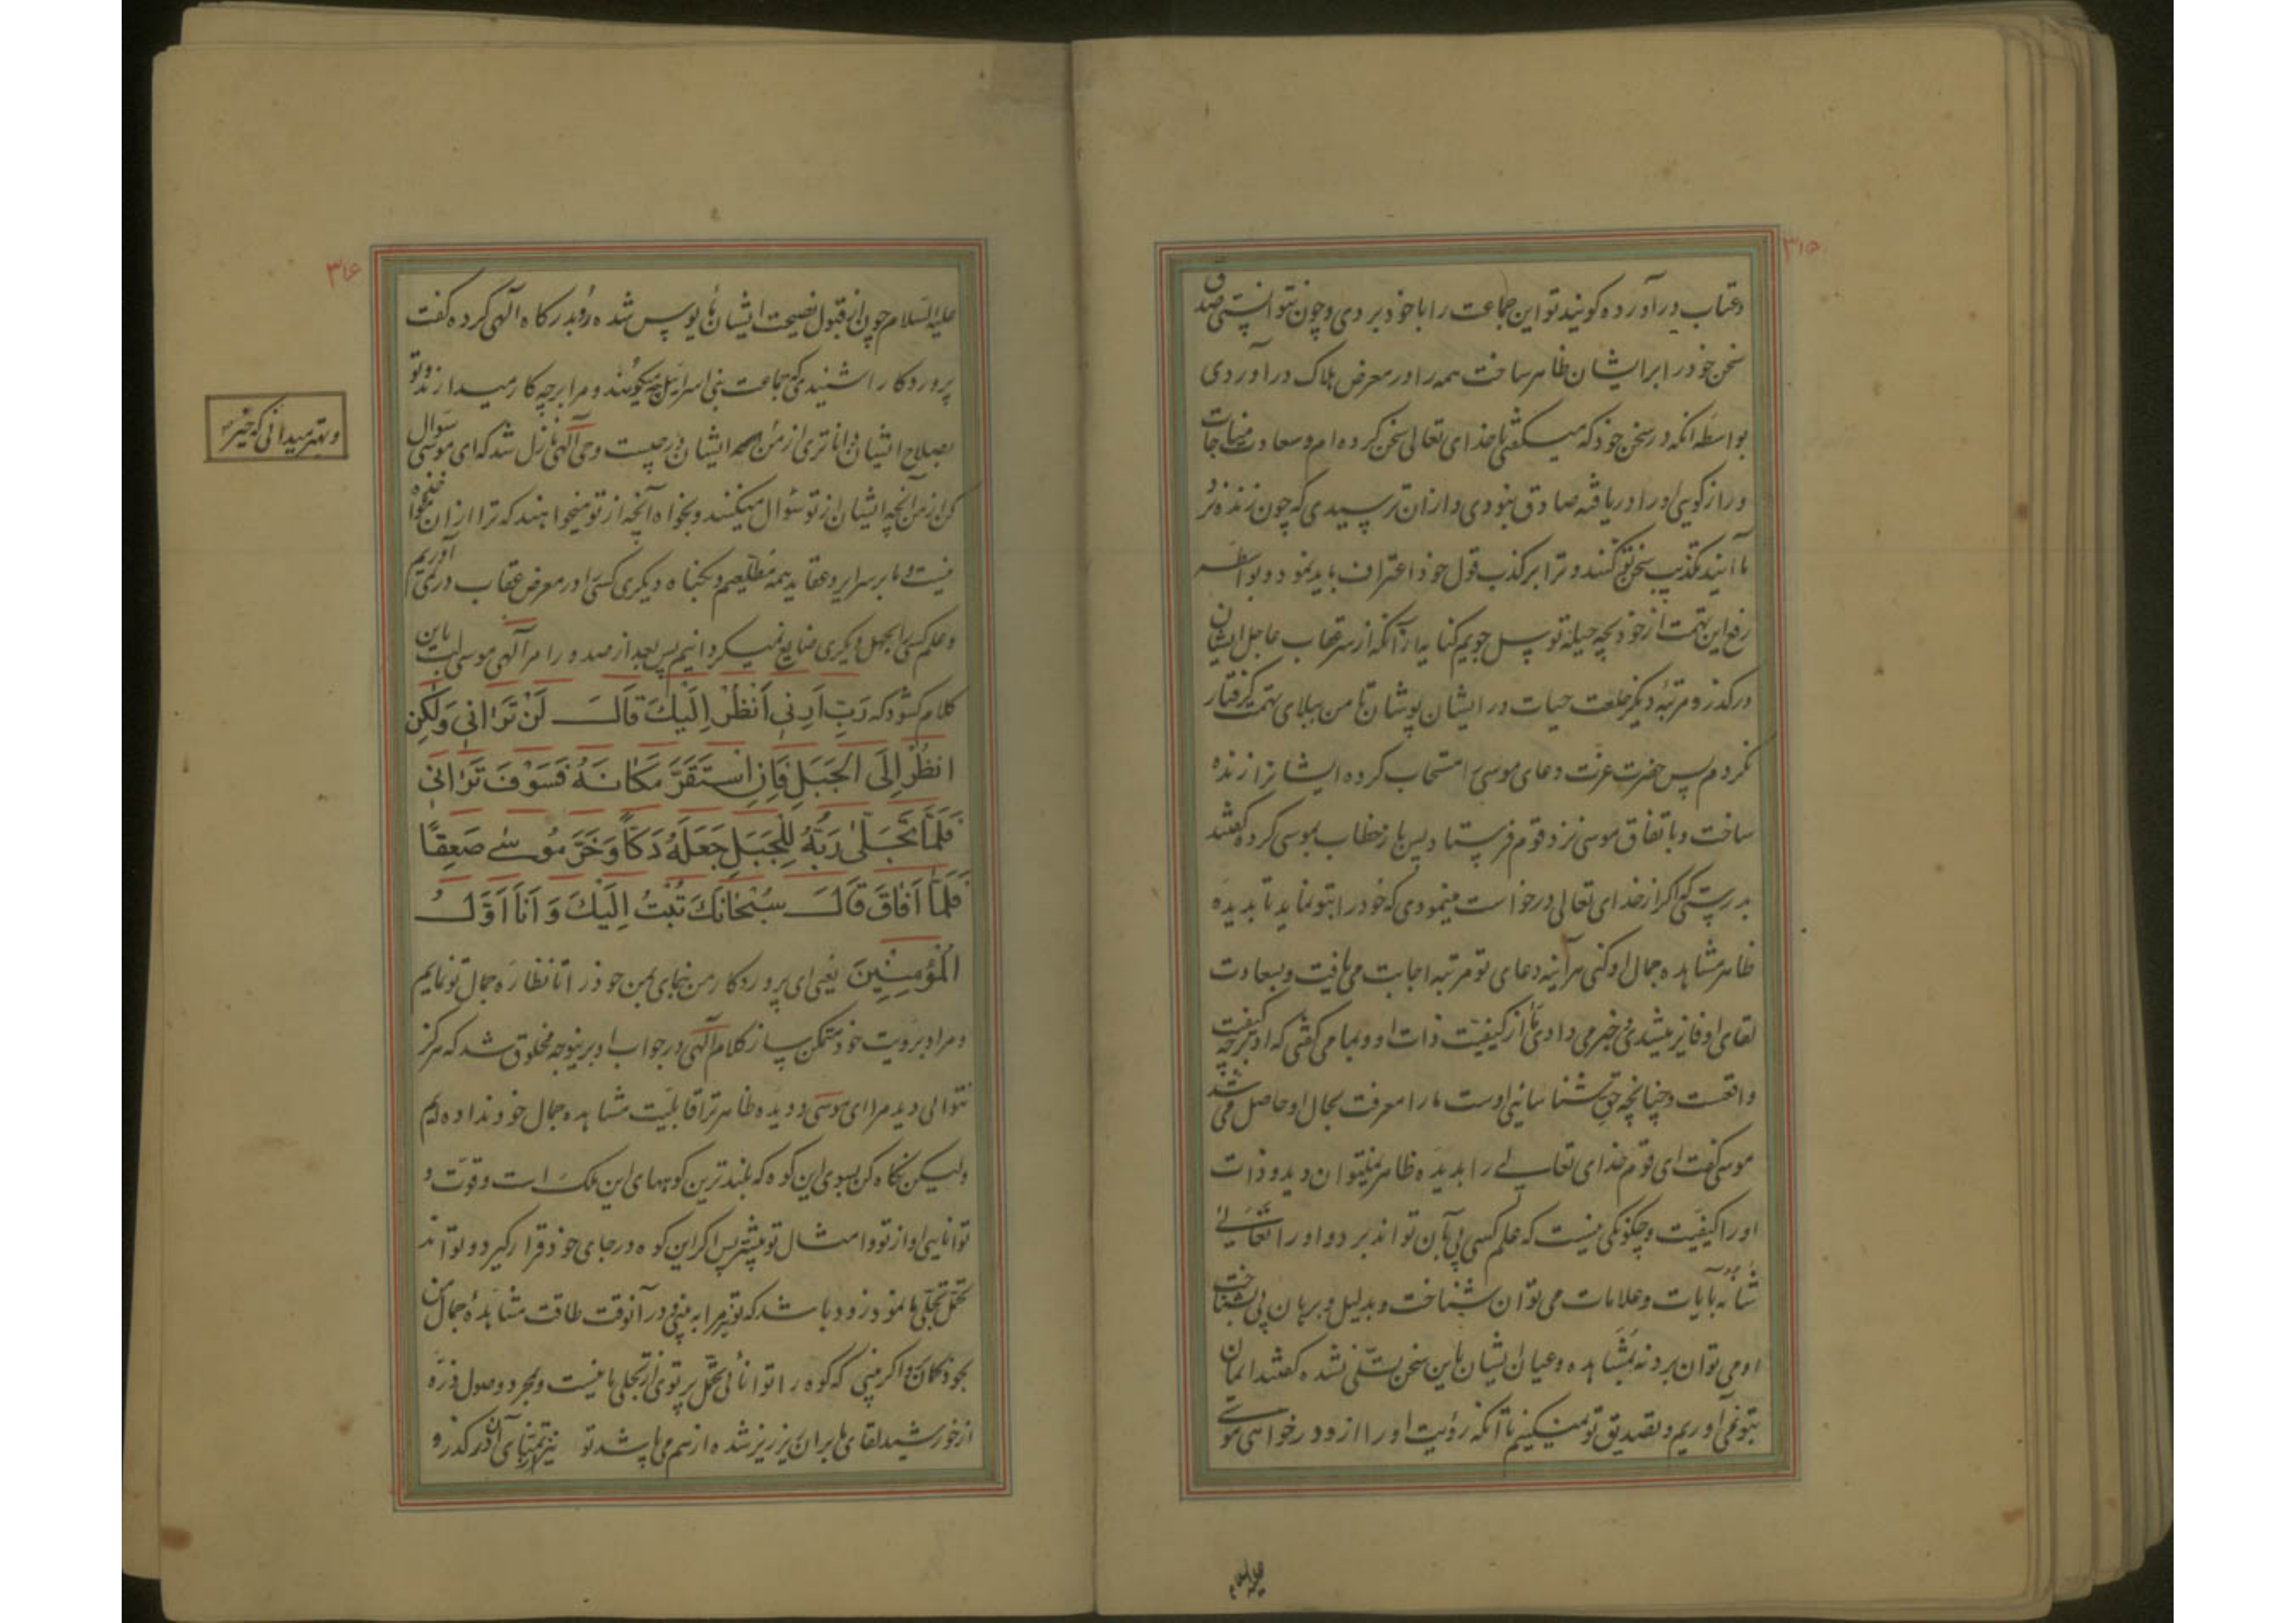 ۳۱۵
وعتاب درآورده کویند تو این جماعت را با خود بردی و چون نتوانستی صدق
سخن خود را بر ایشان ظاهر ساخت همه را در معرض هلاک درآوردی
بواسطه انکه در سخن خود که میکفتی با خدای تعالی سخن کرده ام و سعادت مناجات
و راز کویی او را دریافته صادق نبودی و ازان ترسیدی که چون زنده نزد
ما آیند تکذیب سخن تو کنند و ترا بر کذب قول خود اعتراف باید نمود و بواسطه
رفع این تهمت از خود بچه حیله توسل جویم از سر عقاب عاجل ایشان
درکذر و مرتبه دیکر خلعت حیات در ایشان پوشان تا من ببلای تهمت کرفتار
نکردم پس حضرت عزت دعای موسی را مستجاب کرده ایشانرا زنده
ساخت و باتفاق موسی نزد قوم فرستاد پس باز خطاب بموسی کرده کفتند
بدرستی که اکر از خدای تعالی درخواست مینمودی که خود را بتو نماید تا بدیده
ظاهر مشاهده جمال او کنی هرآینه دعای تو مرتبه اجابت می یافت و بسعادت
لقای او فایز میشدی و خبر می دادی ما را از کیفیت ذات او و بما می کفتی که او بر چه کیفیت
واقعست و چنانچه حق شناسائی اوست ما را معرفت بحال او حاصل می شد
موسی کفت ای قوم خدای تعالی را بدیده ظاهر نمیتوان دید و ذات
او را کیفیت و چکونکی نیست که علم کسی پی بآن تواند برد و او را تعالی
شانه بآیات و علامات می توان شناخت و بدلیل و برهان پی بشناخت
او می توان برد نه بمشاهده و عیان ایشان باین سخن تسلی نشده کفتند ایمان
بتو نمی آوریم و تصدیق تو نمیکنیم تا آنکه رؤیت او را ازو درخواهی موسی
علیه السلام
۳۱۶
علیه السلام چون از قبول نصیحت ایشان مایوس شده رو بدرکاه آلهی کرده کفت
پروردکارا شنیدی که جماعت بنی اسرائیل چه میکویند و مرا بر چه کار میدارند و تو
بصلاح ایشان داناتری از من ایشان در چیست وحی آلهی نازل شد که ای موسی سؤال
کن از من آنچه ایشان از تو سؤال میکنند و بخواه آنچه از تو میخواهند که ترا ازان
نیست و ما بر سرایر و عقاید همه مطلعیم و بکناه دیکری کسی را در معرض عقاب درنمی آوریم
و علم کسی را بجهل دیکری ضایع نمیکردانیم پس بعد از صدور امر آلهی موسی لب باین
کلام کشود که رَبِّ اَرِنی اَنْظُرْ اِلَیْکَ قالَ لَنْ تَرانی وَلکِن
انظُرْ اِلَی الْجَبَلِ فَاِنِ اسْتَقَرَّ مَکانَهُ فَسَوْفَ تَرانی
فَلَمّا تَجَلّی رَبُّهُ لِلْجَبَلِ جَعَلَهُ دَکّاً وَخَرَّ مُوسی صَعِقًا
فَلَمّا اَفاقَ قالَ سُبْحانَکَ تُبْتُ اِلَیْکَ وَاَنَا اَوَّلُ
الْمُؤْمِنینَ یعنی ای پروردکار من بنمای بمن خود را تا نظاره جمال تو نمایم
و مرا بر رویت خود متمکن ساز کلام آلهی در جواب او برینوجه مخلوق شد که هرکز
نتوانی دید مرا ای موسی و دیده ظاهر ترا قابلیت مشاهده جمال خود نداده ایم
ولیکن نکاه کن بسوی این کوه که بلندترین کوههای این ملک است و قوت و
توانایی او از تو و امثال تو بیشتر پس اکر این کوه در جای خود قرار کیرد و تواند
تحمل تجلی ما نمود زود باشد که تو نیز مرا به بینی و در آنوقت طاقت مشاهده جمال من
بخود کمان و اکر بینی که کوه را توانائی تحمل پرتوی از تجلی ما نیست و بمجرد وصول ذره
از خورشید لقای ما بران ریز ریز شده از هم می پاشد تو نیز از تمنای آن درکذر و
و بهتر میدانی که خیر